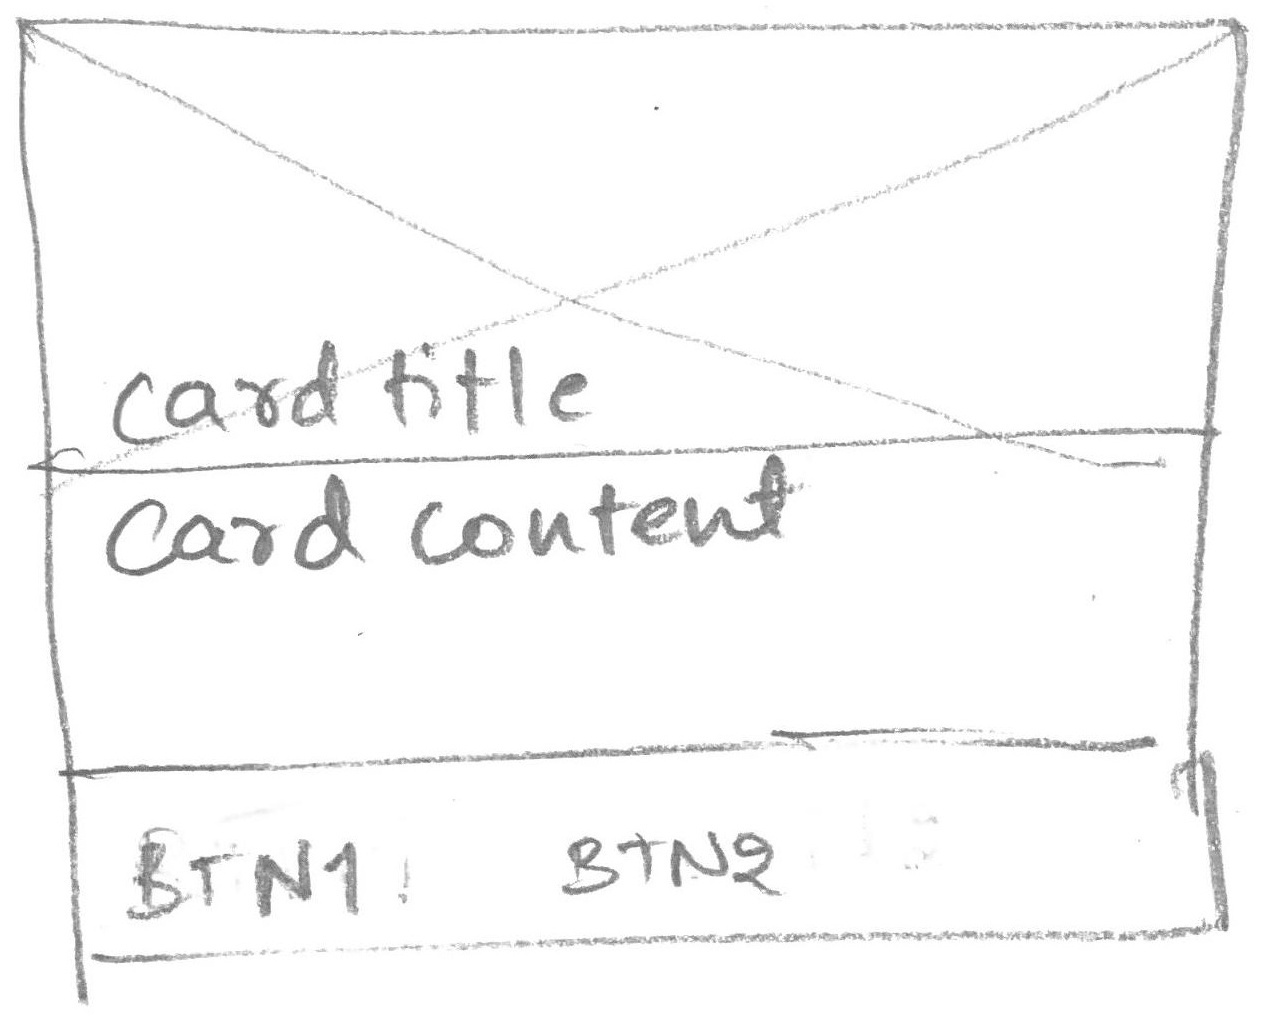 card title
Card content
BTN1 BTN2